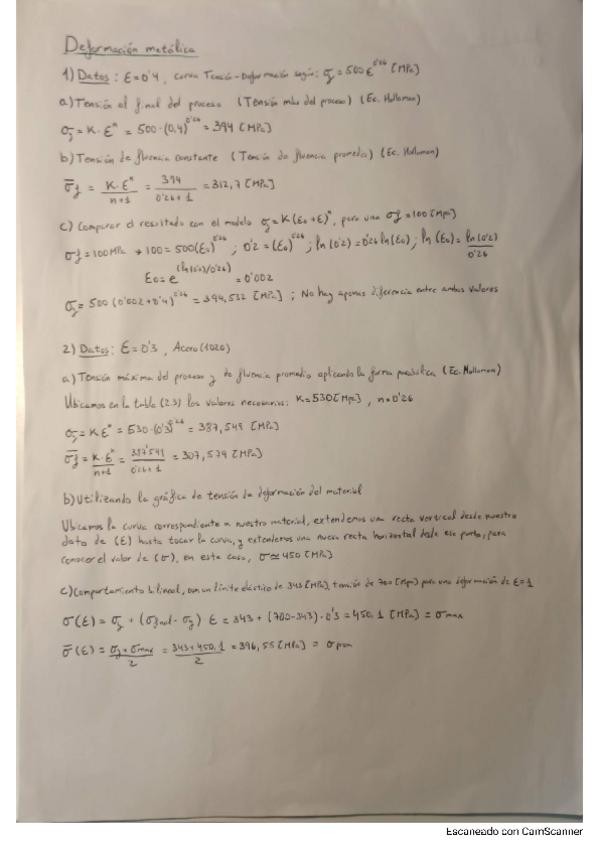 Deformación metálica
1) Datos: ε=0'4, curva Tensión-Deformación según: σ_f = 500 ε^0'26 [MPa]
a) Tensión al final del proceso (Tensión máx del proceso) (Ec. Hollomon)
σ_f = K·ε^n = 500·(0,4)^0'26 = 394 [MPa]
b) Tensión de fluencia constante (Tensión de fluencia promedio) (Ec. Hollomon)
σ̄_f = K·ε^n / n+1 = 394 / 0'26+1 = 312,7 [MPa]
c) Comparar el resultado con el modelo σ_f = K(ε₀+ε)^n, para una σ_f = 100 [MPa]
σ_f = 100 MPa → 100 = 500(ε₀)^0'26 ; 0'2 = (ε₀)^0'26 ; ln(0'2) = 0'26 ln(ε₀) ; ln(ε₀) = ln(0'2) / 0'26
ε₀ = e^(ln(0'2)/0'26) = 0'002
σ_f = 500 (0'002+0'4)^0'26 = 394,532 [MPa] ; No hay apenas diferencia entre ambos valores
2) Datos: ε=0'3, Acero (1020)
a) Tensión máxima del proceso y de fluencia promedio aplicando la forma parabólica (Ec. Hollomon)
Ubicamos en la tabla (2.3) los valores necesarios: K=530 [Mpa], n=0'26
σ_f = K ε^n = 530·(0'3)^0'26 = 387,549 [MPa]
σ̄_f = K·ε^n / n+1 = 387'549 / 0'26+1 = 307,579 [MPa]
b) Utilizando la gráfica de tensión de deformación del material
Ubicamos la curva correspondiente a nuestro material, extendemos una recta vertical desde nuestro
dato de (ε) hasta tocar la curva, y extendemos una nueva recta horizontal desde ese punto, para
conocer el valor de (σ), en este caso, σ ≃ 450 [MPa]
c) Comportamiento bilineal, con un límite elástico de 343 [MPa], tensión de 700 [Mpa] para una deformación de ε=1
σ(ε) = σ_y + (σ_final - σ_y) ε = 343 + (700-343)·0'3 = 450,1 [MPa] = σ max
σ̄(ε) = σ_y + σ max / 2 = 343+450,1 / 2 = 396,55 [MPa] = σ prom
Escaneado con CamScanner